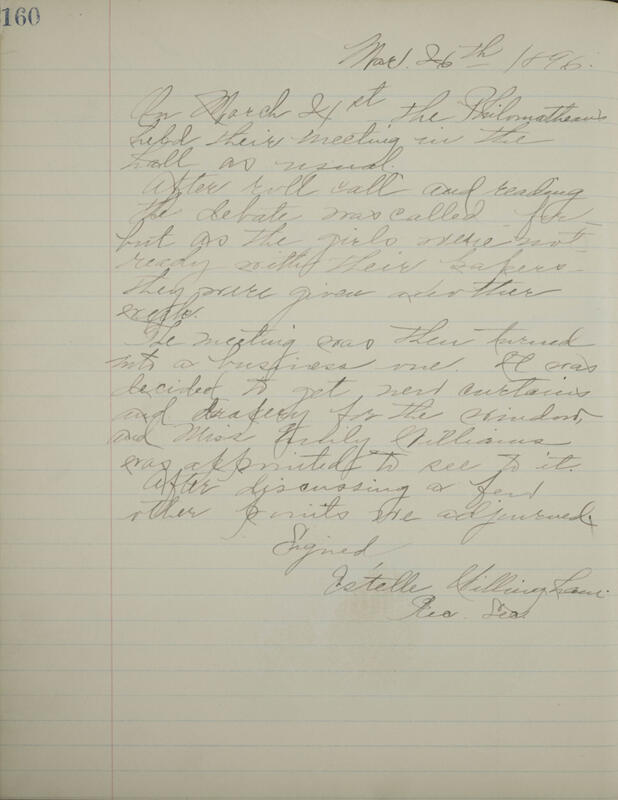 160
Mar. 26th 1896.
On March 21st the Philomatheans
held their meeting in the
hall as usual.
After roll call and reading
the debate was called for
but as the girls were not
ready with their papers
they were given another
week.
The meeting was then turned
into a business one. It was
decided to get new curtains
and drapery for the window,
and Miss Emily Williams
was appointed to see to it.
After discussing a few
other points we adjourned.
Signed
Estelle Willingham.
Rec. Sec.